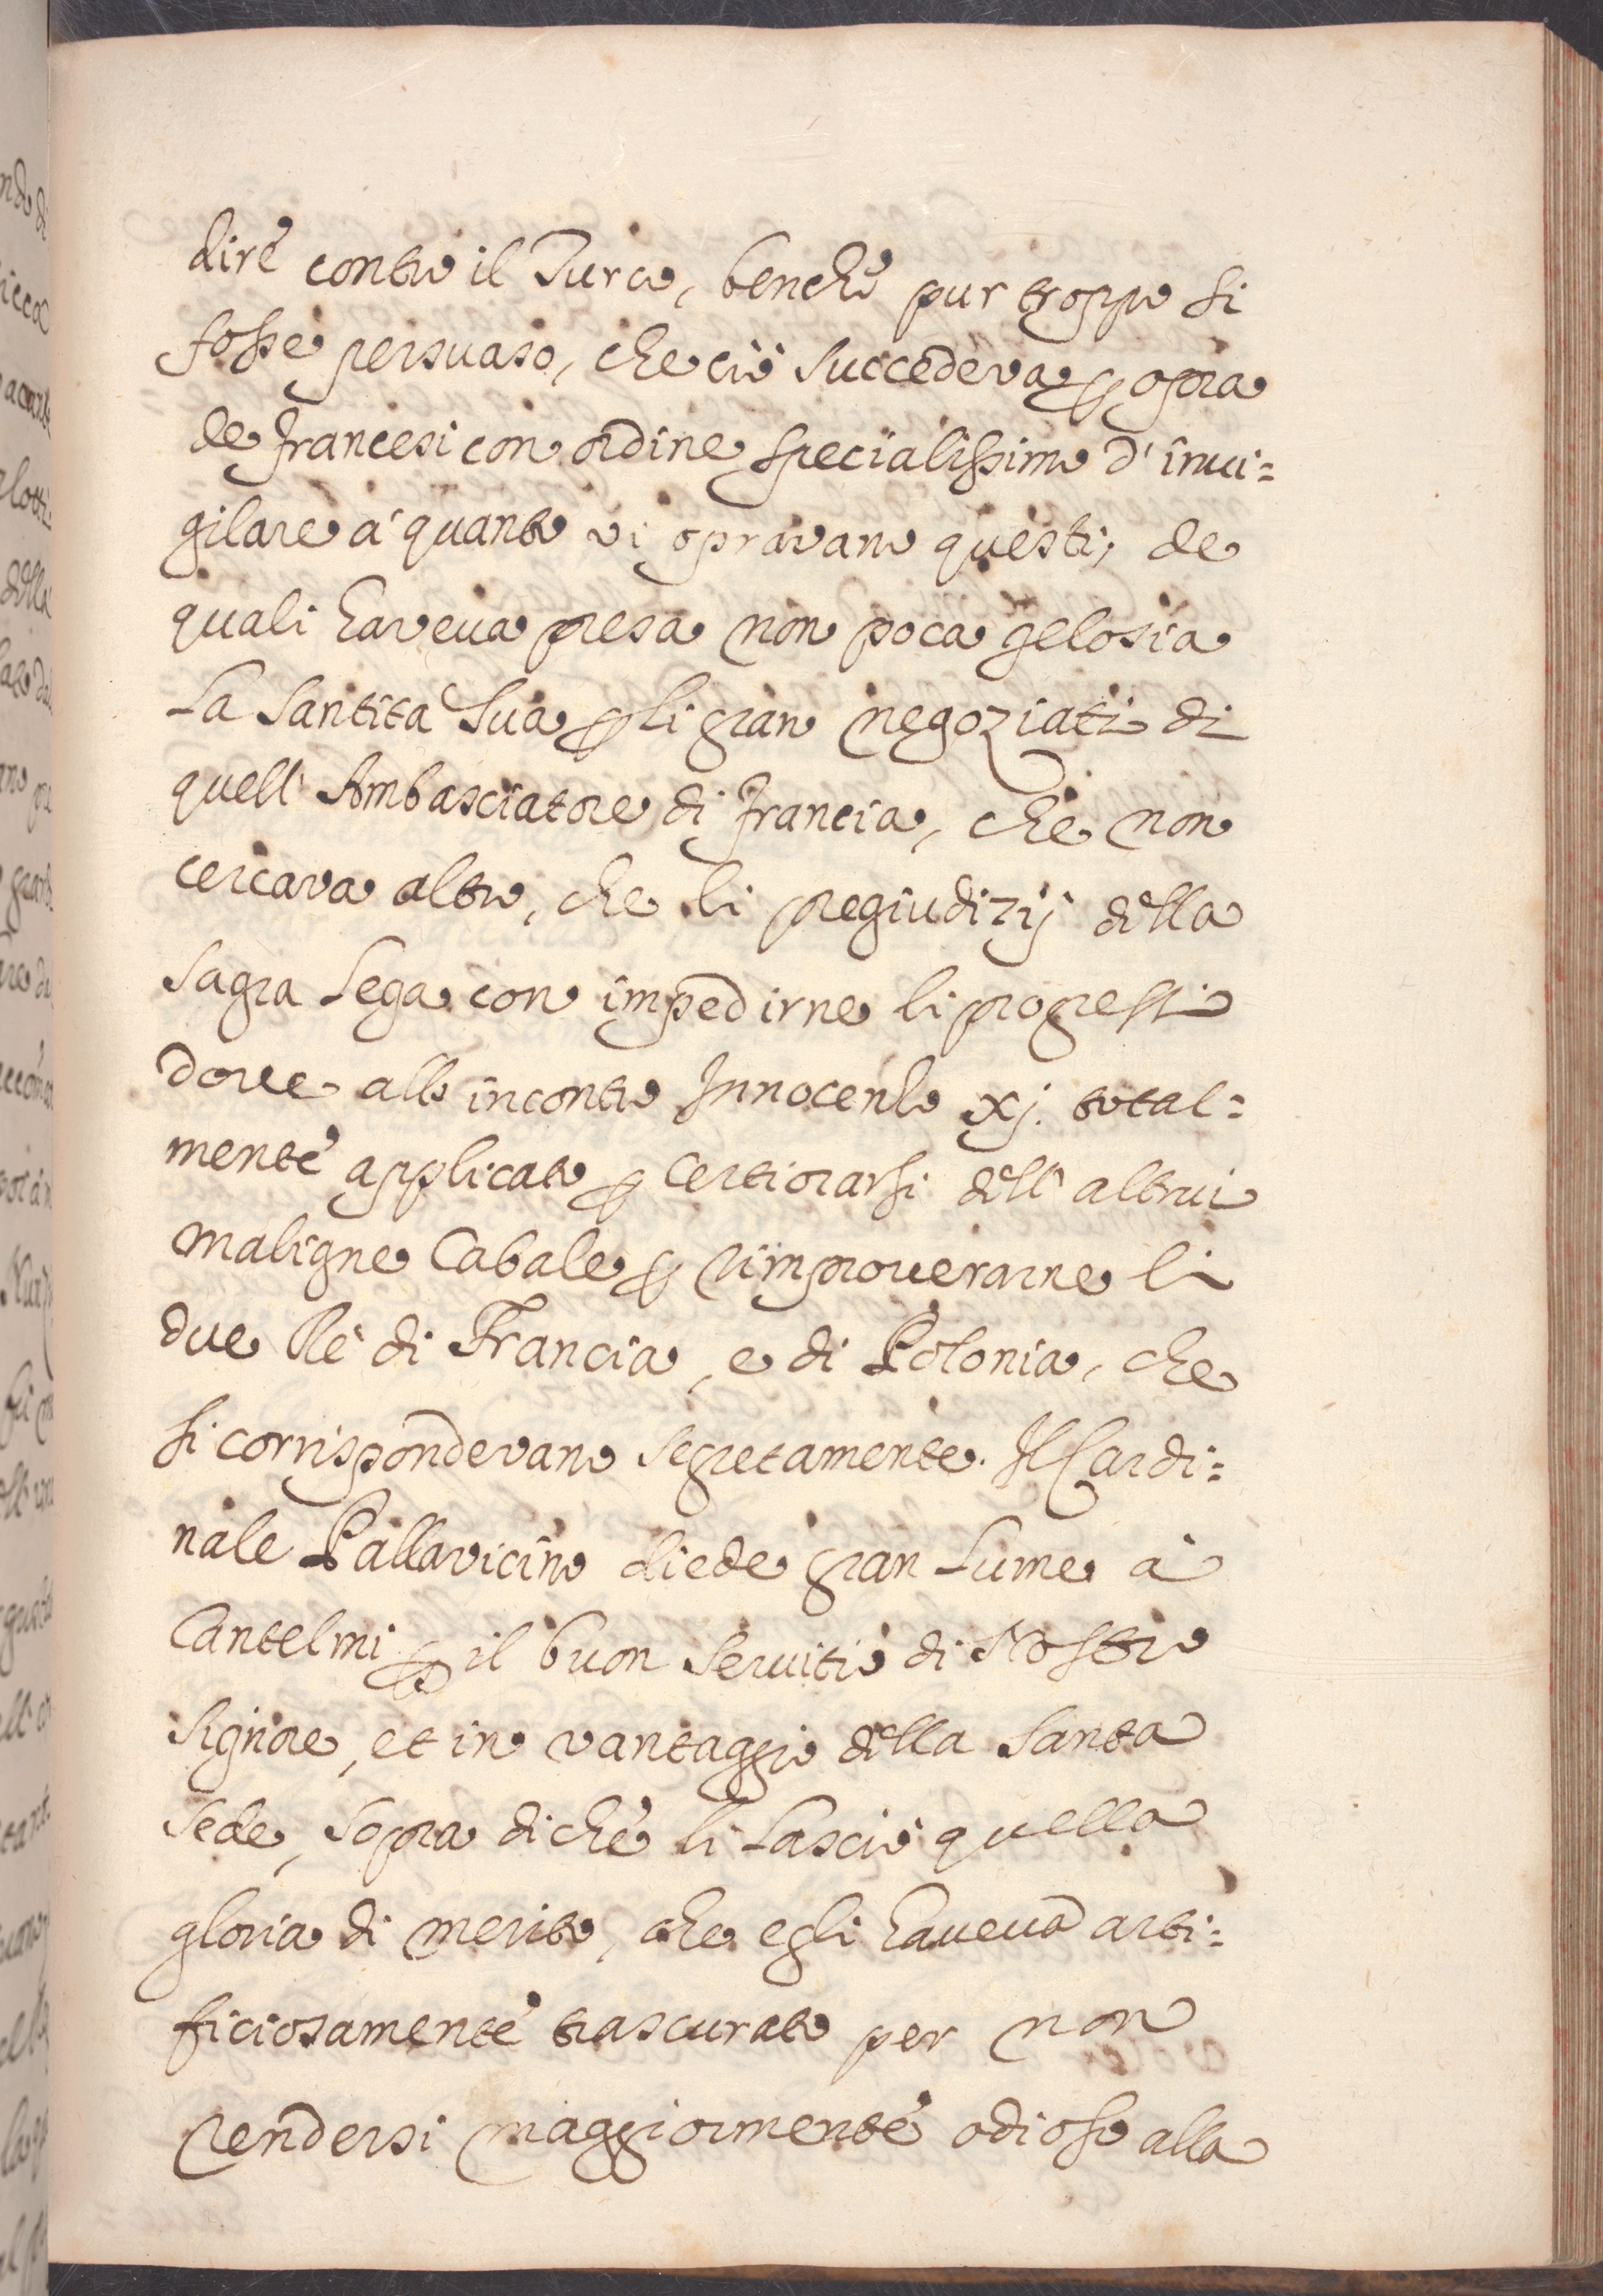 dire contro il Turco, benche pur troppo si
fosse persuaso, che ciò succedeva ꝑ opra
de francesi con ordine specialissimo d'inui=
gilare a' quanto vi opravano questi; de
quali haveua presa non poca gelosia
La Santita Sua ꝑ li gran negoziati di
quell' Ambasciatore di francia, che non
cercava altro, che li pregiudizij della
Sagra Lega con impedirne li progressi
dove all'incontro Innocenzo xj. total=
mente applicato ꝑ certiorarsi dell'altrui
maligne Cabale ꝑ rimproverarne li
due Rè di Francia, e di Polonia, che
si corrispondevano segretamente. Il Cardi=
nale Pallavicino diede gran lume à
Cantelmi ꝑ il buon servitio di Nostro
Signore, et in vantaggio della Santa
Sede, sopra di che li lasciò quella
gloria di merito, che egli haveua arti=
ficiosamente trascurato per non
rendersi maggiormente odioso alla